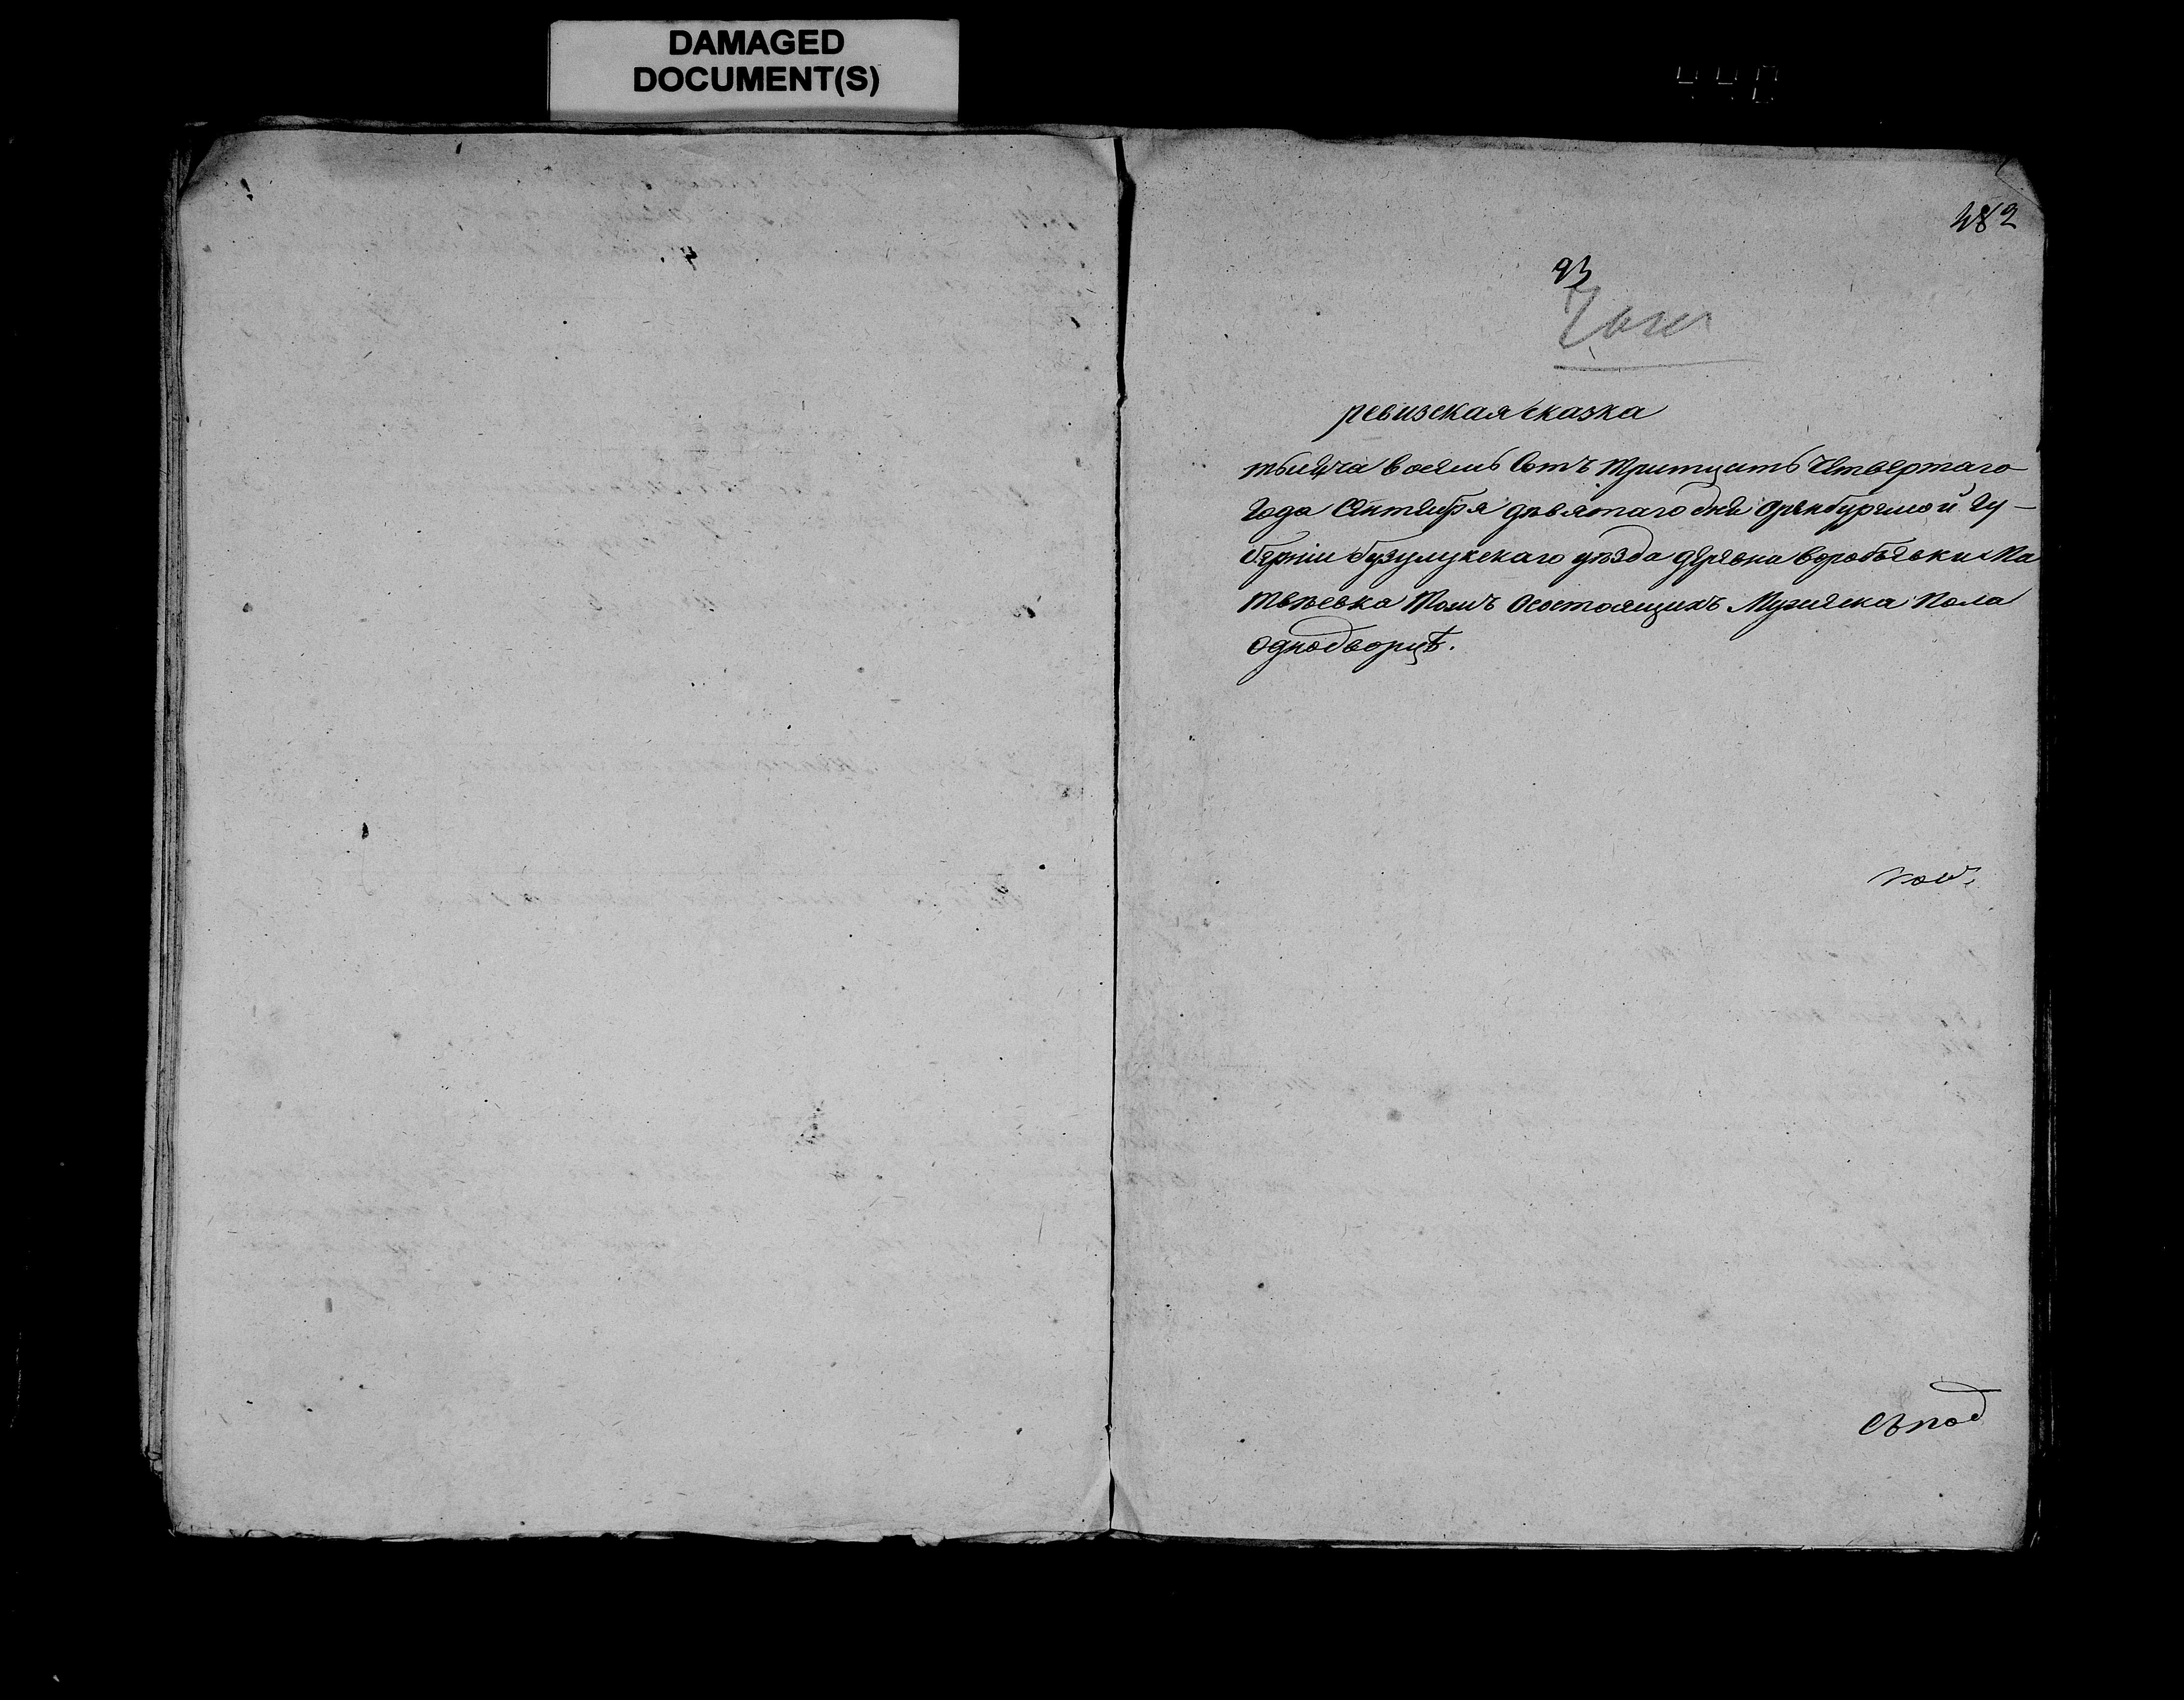 DAMAGED
DOCUMENT(S)
482
93
ревизская сказка
тысяча восемь сотъ тритцать четвертаго
года Октября девятаго дня оренбурхской гу-
берніи бузулукскаго уѣзда деревни воробьевки Ма
твѣевка тожъ осостоящихъ мужеска пола
однодворцѣ.
сѣпод